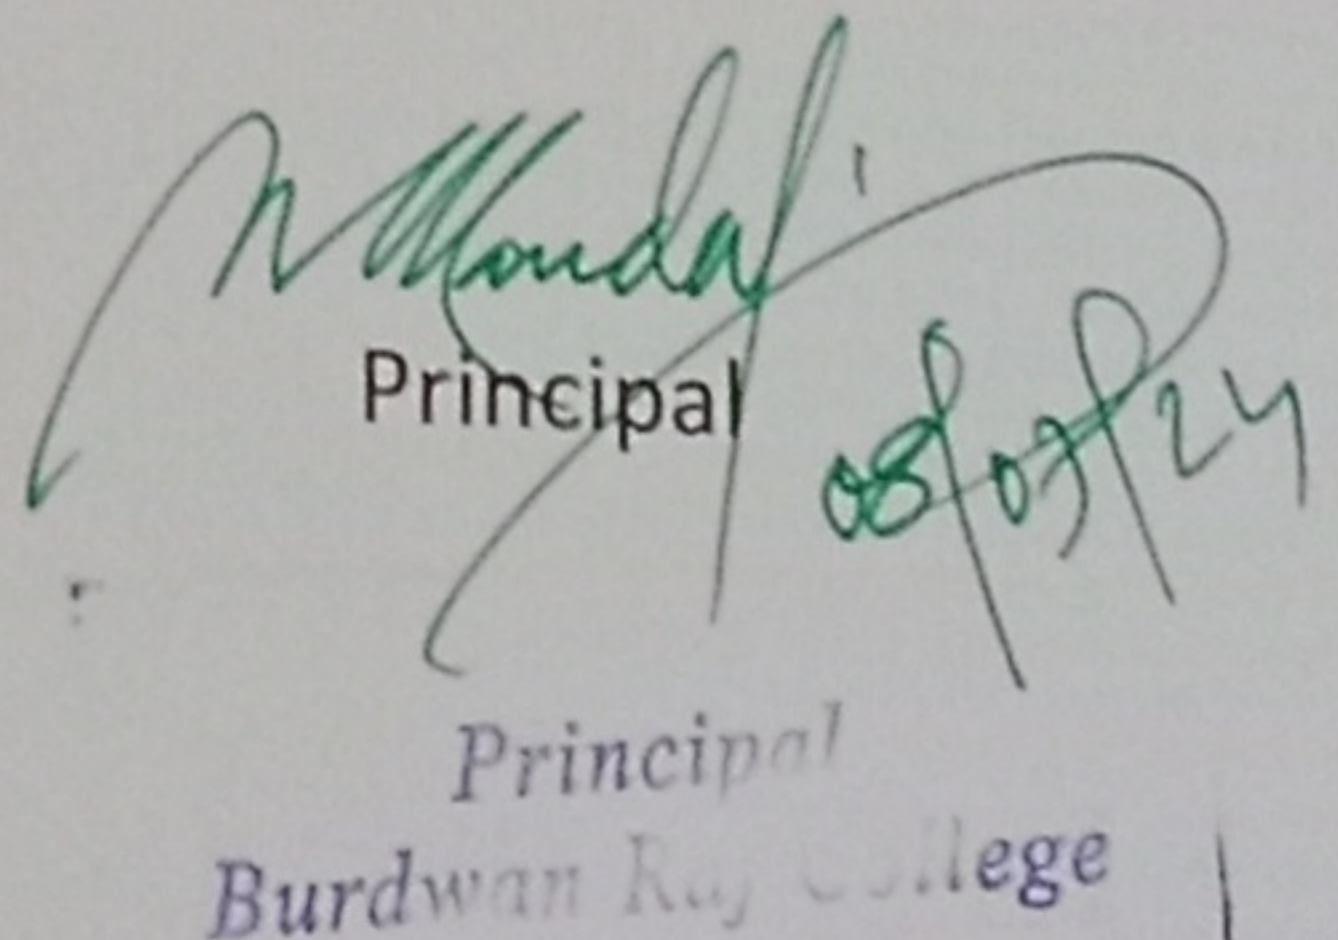 N Mondal
Principal
08/07/24
Principal
Burdwan Raj College